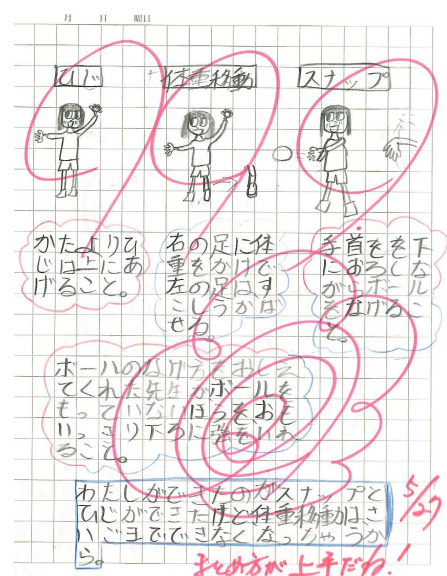 月 日 曜日
ひじ
体重移動
スナップ
かたよりひ
じは上にあ
げること。
右の足に体
重をかけて
左の足はす
こしうかば
せる。
手首をを下
におろしな
がらボール
をなげるこ
と。
ボールのなげ方をおしえ
てくれた先生がボールを
もっていないほうをおも
いっきり下ろに
ること。
わたしができたのがスナップと
ひじができたけど体重移動はさ
いごまでできなくなっちゃうか
ら。
5/27
まとめ方が上手だね!